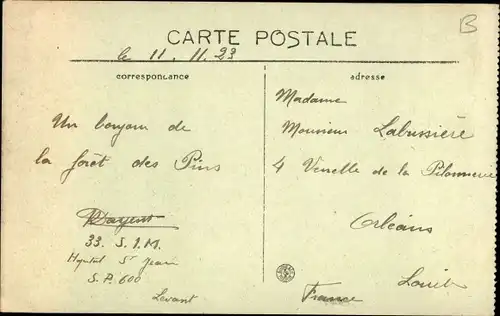 B
CARTE POSTALE
le 11. 11. 23
correspondance
adresse
Un bonjour de
la forêt des Pins
33. S.I.M.
Hopital St Jean
S.P. 600
Levant
Madame
Monsieur Labussière
4 Venelle de la
Orléans
Loiret
France